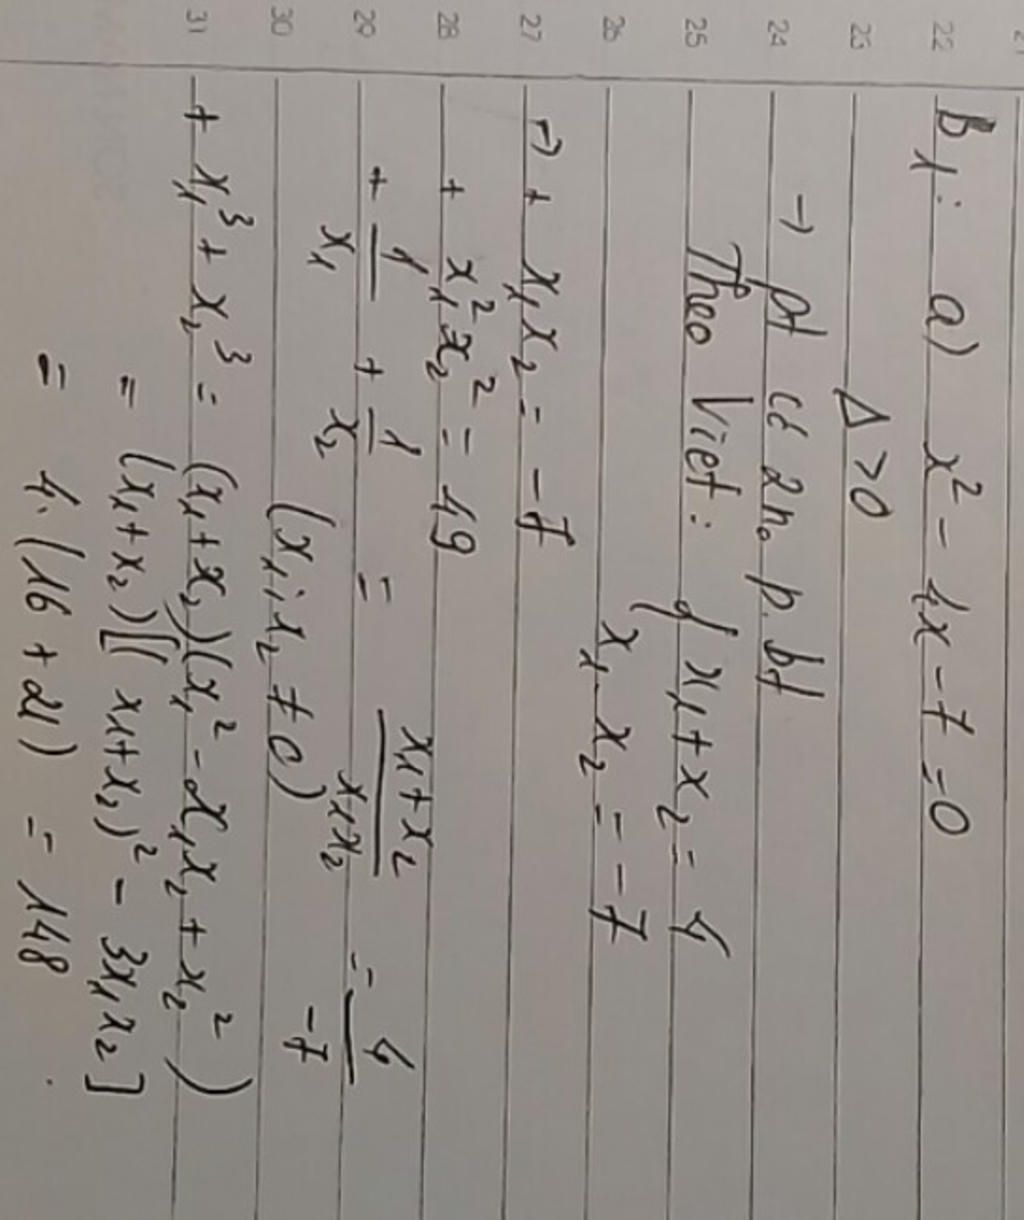 21
22
23
24
25
26
27
28
29
30
31
B1: a) x² - 4x - 7 = 0
Δ > 0
→ pt có 2 n0 p. bt
Theo Viet: { x1 + x2 = 4
x1 . x2 = -7
→ + x1x2 = -7
+ x1² x2² = 49
+ 1/x1 + 1/x2 = (x1 + x2)/(x1x2) = 4/-7
(x1; x2 ≠ 0)
+ x1³ + x2³ = (x1 + x2)(x1² - x1x2 + x2²)
= (x1 + x2)[(x1 + x2)² - 3x1x2]
= 4. (16 + 21) = 148